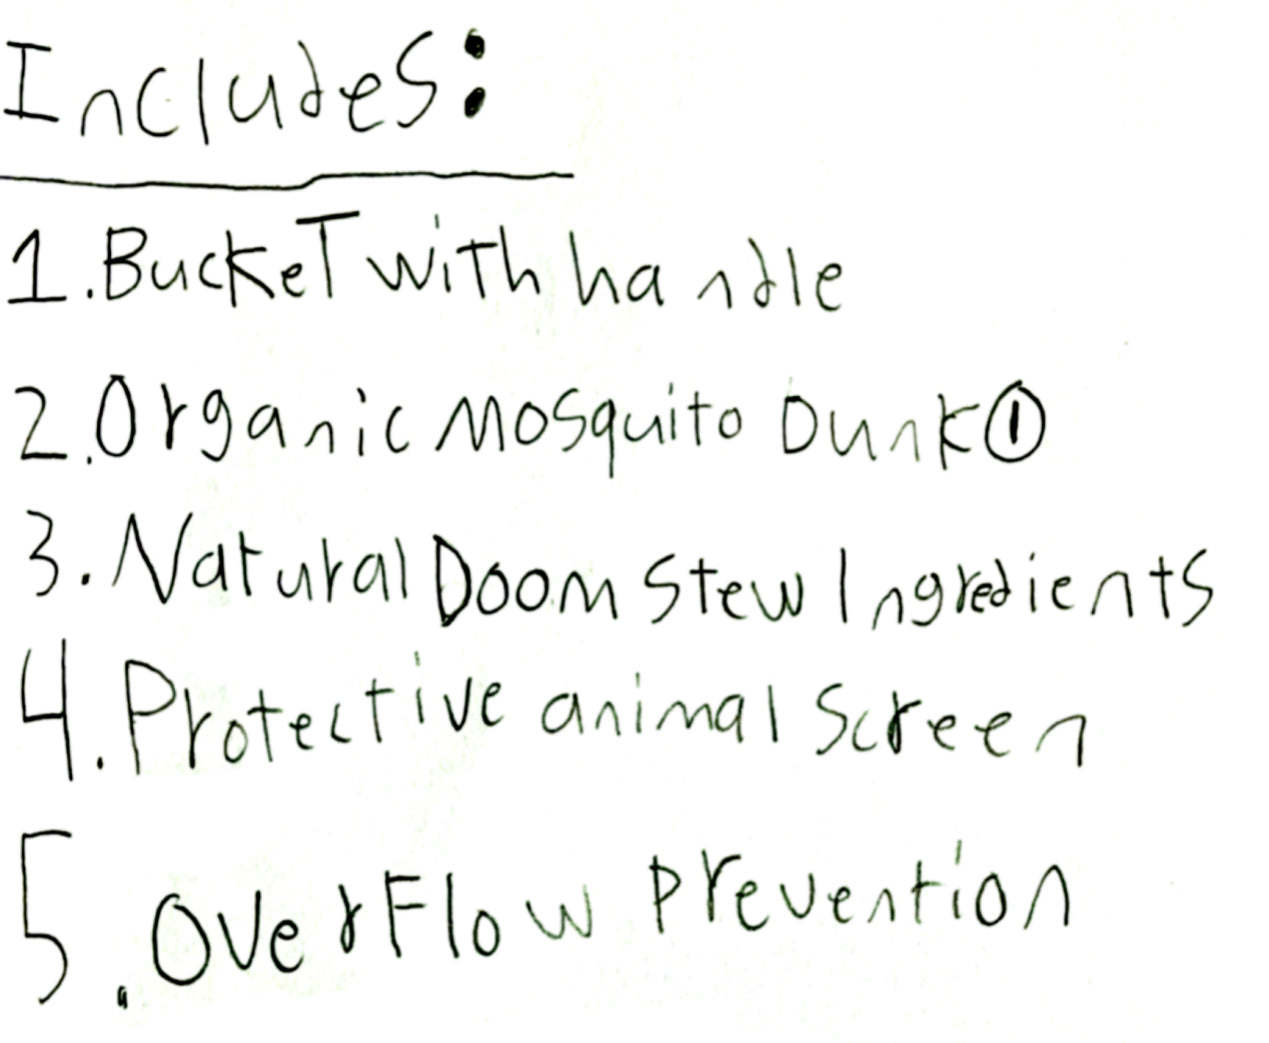 Includes:
1. Bucket with handle
2. Organic Mosquito Dunk ①
3. Natural Doom Stew Ingredients
4. Protective animal Screen
5. OverFlow Prevention